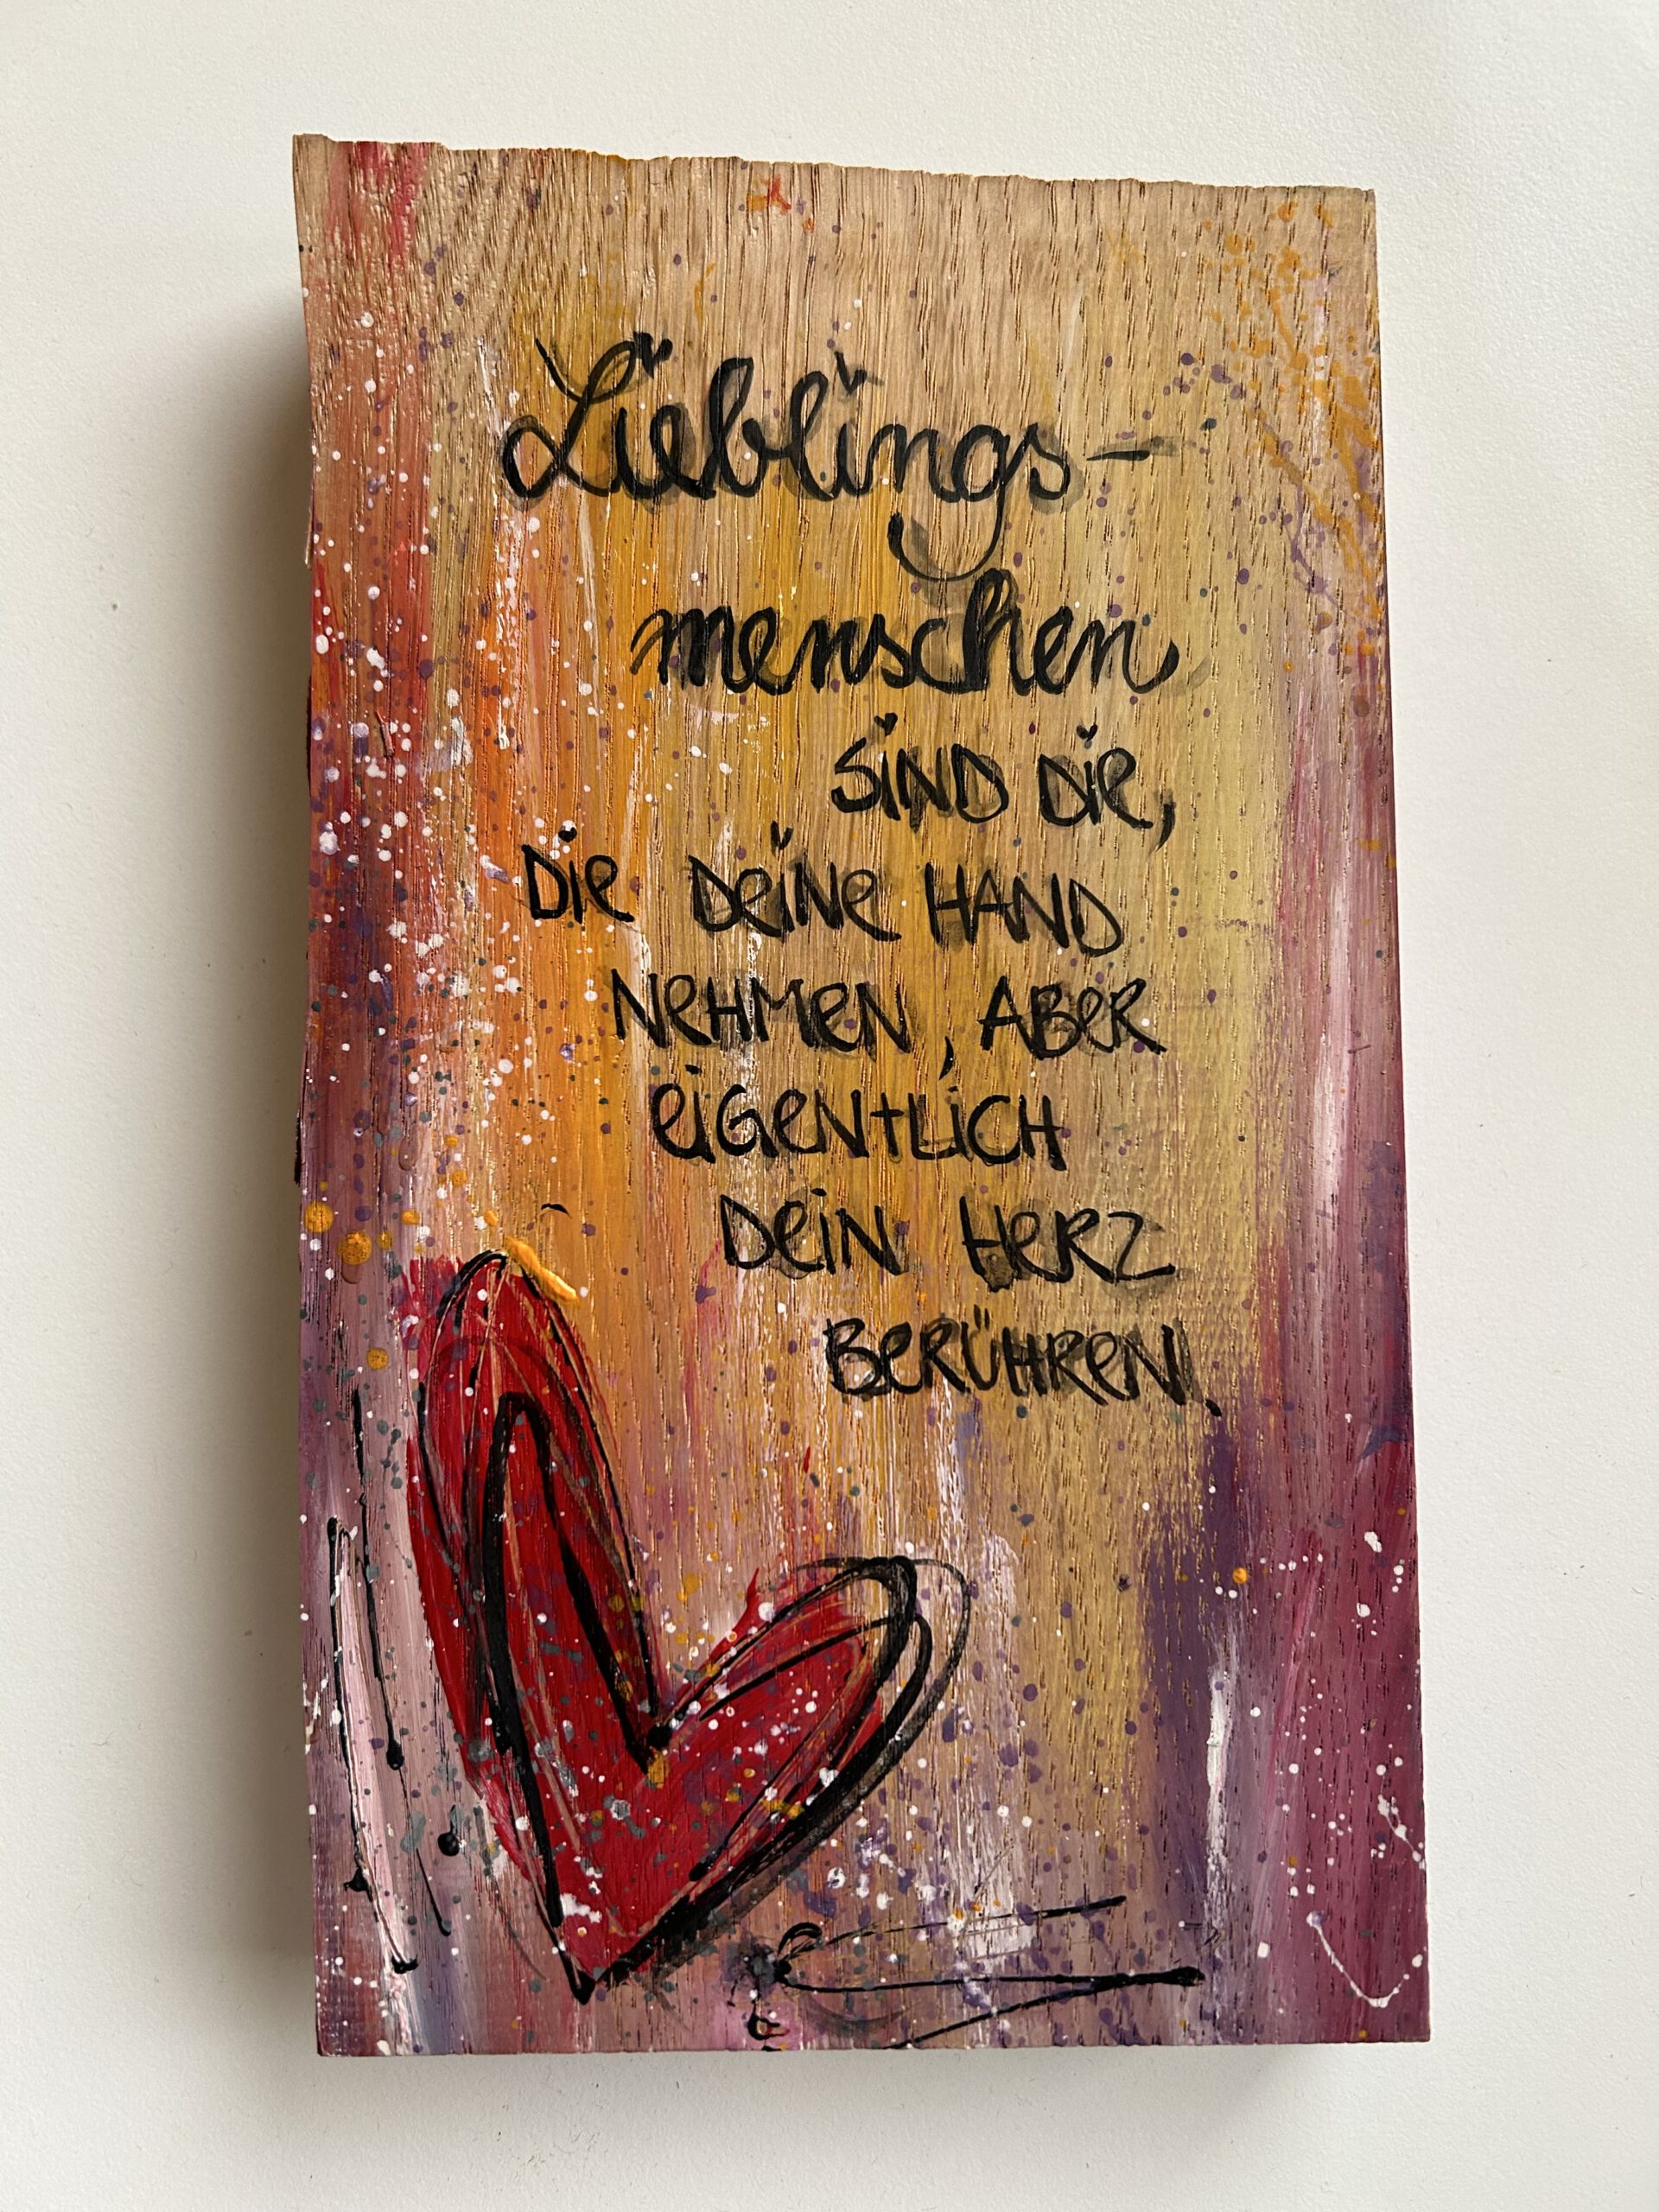 Lieblings-
menschen
SIND DIE,
DIE DEINE HAND
NEHMEN, ABER
EIGENTLICH
DEIN HERZ
BERÜHREN.